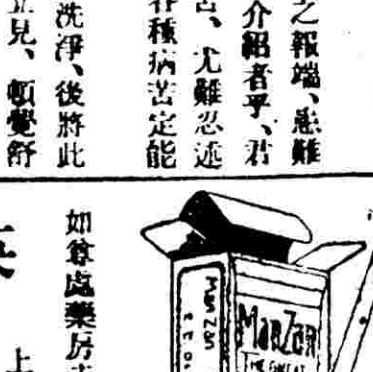 之報端、患難
介紹者乎、君
苦、尤難忍述
各種病苦定能
洗淨、後將此
立見、頓覺舒
如尊處藥房
上
ManZan
ManZan
THE GREAT